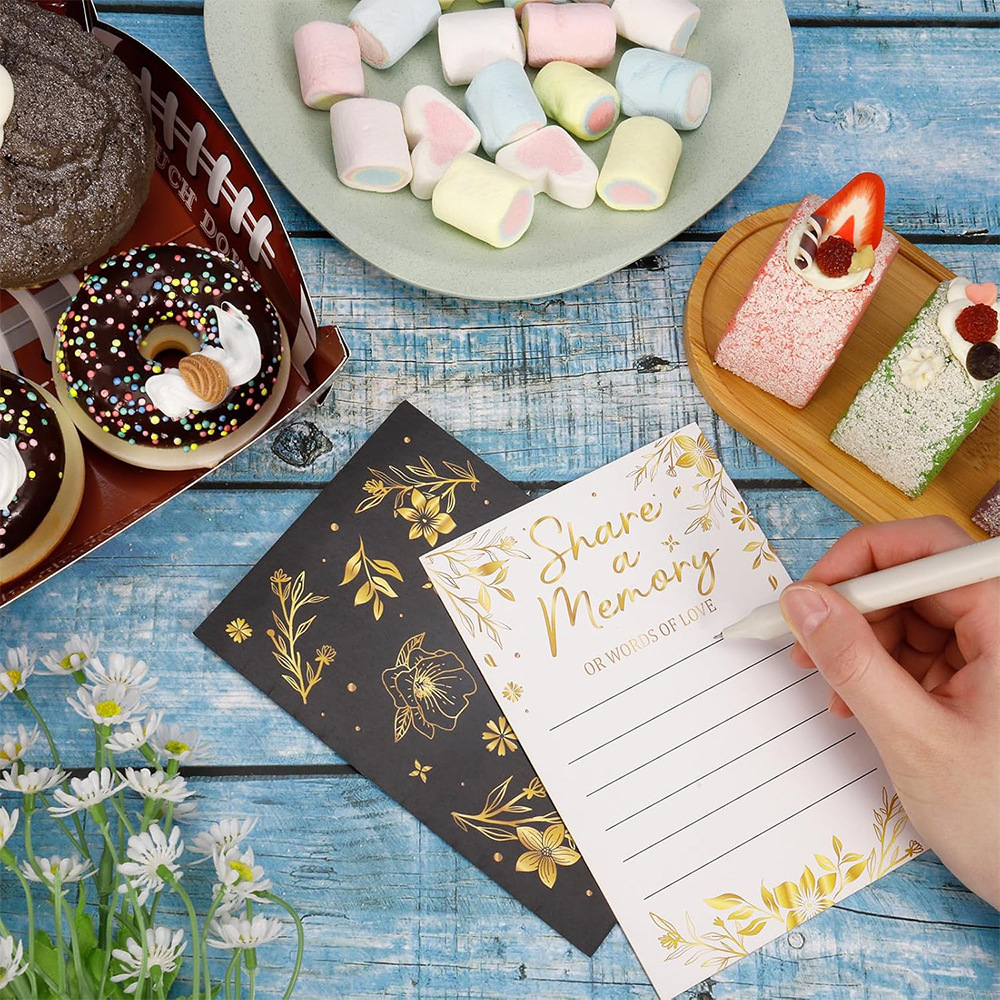 UCH DO
Share
a
Memory
OR WORDS OF LOVE